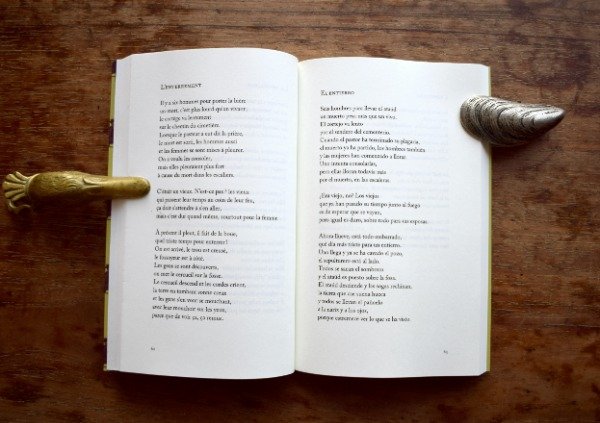 L'ENTERREMENT
Il y a six hommes pour porter la bière
un mort, c'est plus lourd qu'un vivant.
le cortège va lentement
sur le chemin du cimetière.
Lorsque le pasteur a tait dit la prière,
le mort est sizé, les hommes aussi
et les femmes se sont mises à pleurer.
On a voulu les consoler,
mais elles pleuraient plus fort
à cause du mort dans les escaliers.
C'était un vieux. N'est-ce pas? les vieux
qui passent leur temps au coin de leur feu,
ça doit s'attendre à s'en aller,
mais c'est dur quand même, surtout pour la femme
À présent il pleut, il fait de la boue,
quel triste temps pour enterrer!
On est arrivé, le trou est creusé,
le fossoyeur est à côté.
Les gens se sont découverts,
on met le cercueil sur la fosse.
Le cercueil descend et les cordes crient,
la terre en tombant sonne creux
et les gens s'en vont se mouchant,
avec leur mouchoir sur les yeux,
parce que de voir ça, ça remue.
62
EL ENTIERRO
Seis hombres para llevar el ataúd
un muerto pesa más que un vivo.
El cortejo va lento
por el sendero del cementerio.
Cuando el pastor ha terminado la plegaria,
el muerto ya ha partido, los hombres también
y las mujeres han comenzado a llorar.
Uno intenta consolarlas,
pero ellas lloran todavía más
por el muerto, en las escaleras.
¡Era viejo, no! Los viejos
que ya han pasado su tiempo junto al fuego
es de esperar que se vayan,
pero igual es duro, sobre todo para su esposa.
Ahora llueve, está todo embarrado,
qué día más triste para un entierro.
Uno llega y ya se ha cavado el pozo,
el sepulturero está al lado.
Todos se sacan el sombrero
y el ataúd es puesto sobre la fosa.
El ataúd desciende y las sogas rechinan.
la tierra que cae suena hueca
y todos se llevan el pañuelo
a la nariz y a los ojos,
porque conmueve ver lo que se ha visto
63